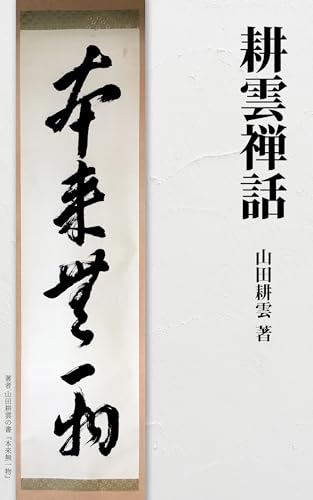 耕雲禅話
山田耕雲 著
本来無一物
著者 山田耕雲の書『本来無一物』